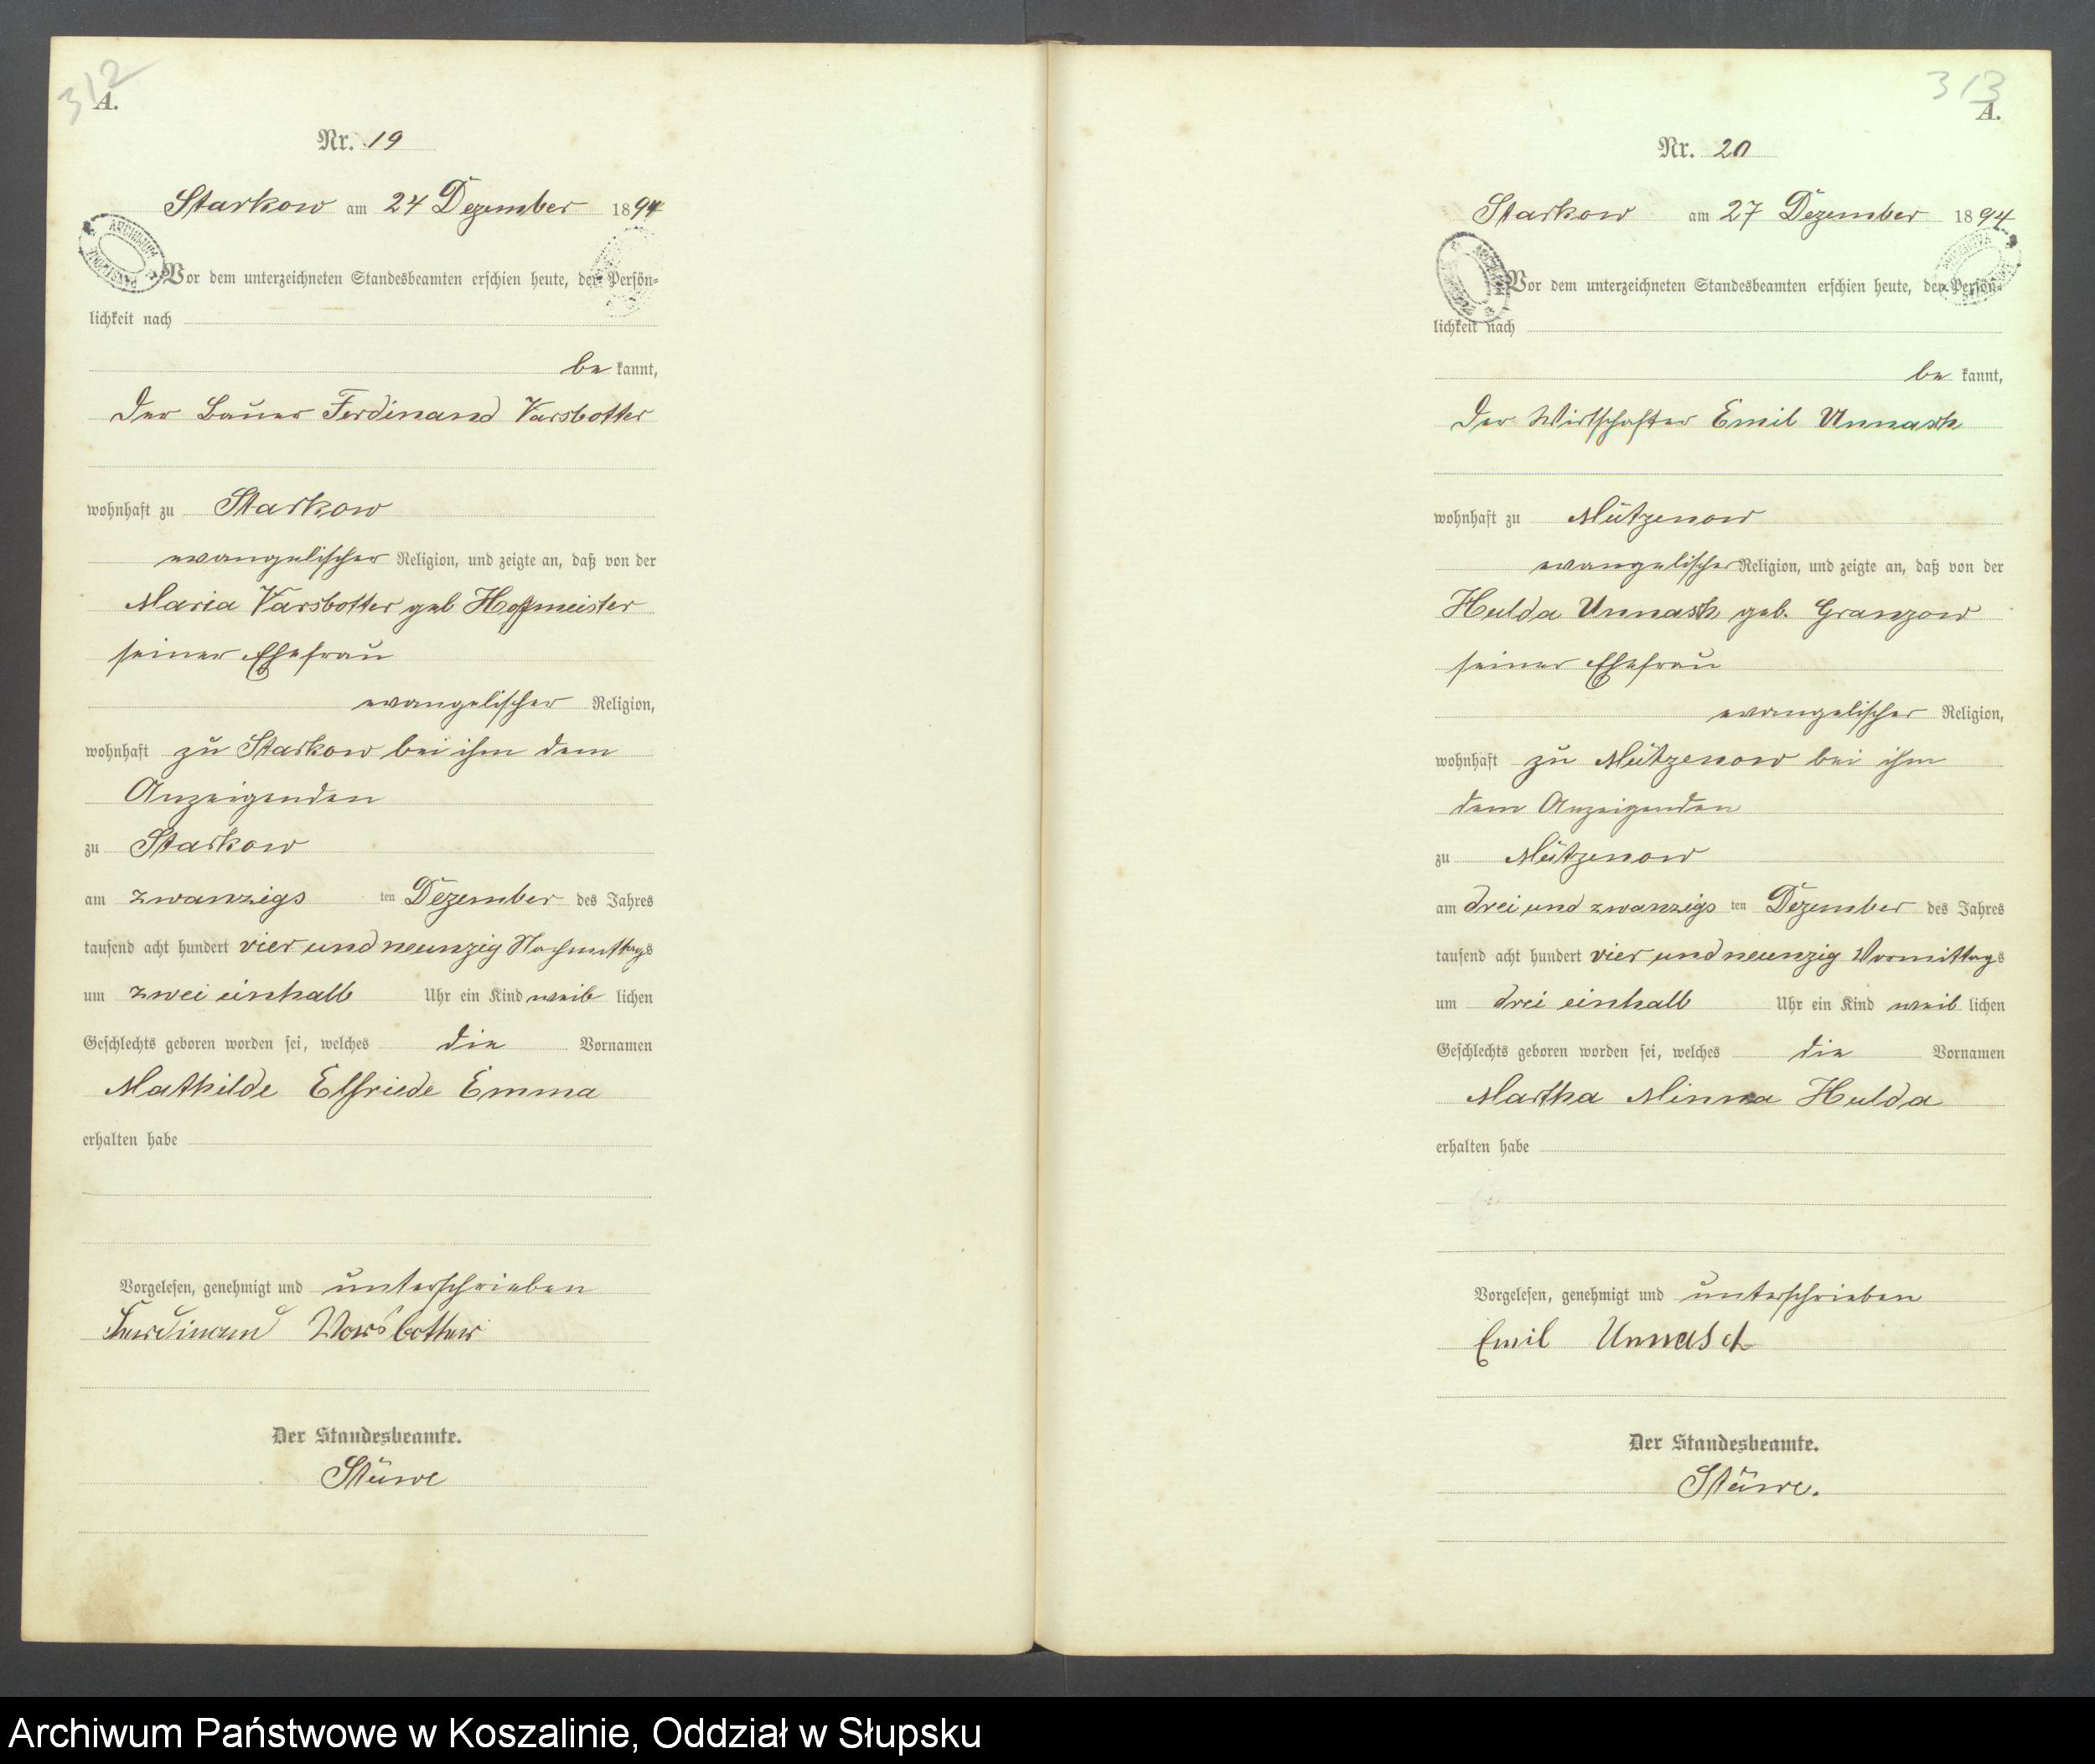 312
A.
Nr. 19
Starkow am 24 Dezember 1894
Vor dem unterzeichneten Standesbeamten erschien heute, der Persön-
lichkeit nach
be kannt,
der Bauer Ferdinand Varsbotter
wohnhaft zu Starkow
evangelischer Religion, und zeigte an, daß von der
Maria Varsbotter geb Hoffmeister
seiner Ehefrau
evangelischer Religion,
wohnhaft zu Starkow bei ihm dem
Anzeigenden
zu Starkow
am zwanzigs ten Dezember des Jahres
tausend acht hundert vier und neunzig Nachmittags
um zwei einhalb Uhr ein Kind weib lichen
Geschlechts geboren worden sei, welches die Vornamen
Mathilde Elfriede Emma
erhalten habe
Vorgelesen, genehmigt und unterschrieben
Ferdinand
Der Standesbeamte.
Stüwe
313
A.
Nr. 20
Starkow am 27 Dezember 1894
Vor dem unterzeichneten Standesbeamten erschien heute, der Persön-
lichkeit nach
be kannt,
der Wirtschafter Emil Unnasch
wohnhaft zu Mützenow
evangelischer Religion, und zeigte an, daß von der
Hulda Unnasch geb. Granzow
seiner Ehefrau
evangelischer Religion,
wohnhaft zu Mützenow bei ihm
dem Anzeigenden
zu Mützenow
am drei und zwanzigs ten Dezember des Jahres
tausend acht hundert vier und neunzig Vormittags
um drei einhalb Uhr ein Kind weib lichen
Geschlechts geboren worden sei, welches die Vornamen
Martha Minna Hulda
erhalten habe
Vorgelesen, genehmigt und unterschrieben
Emil Unnasch
Der Standesbeamte.
Stüwe.
Archiwum Państwowe w Koszalinie, Oddział w Słupsku